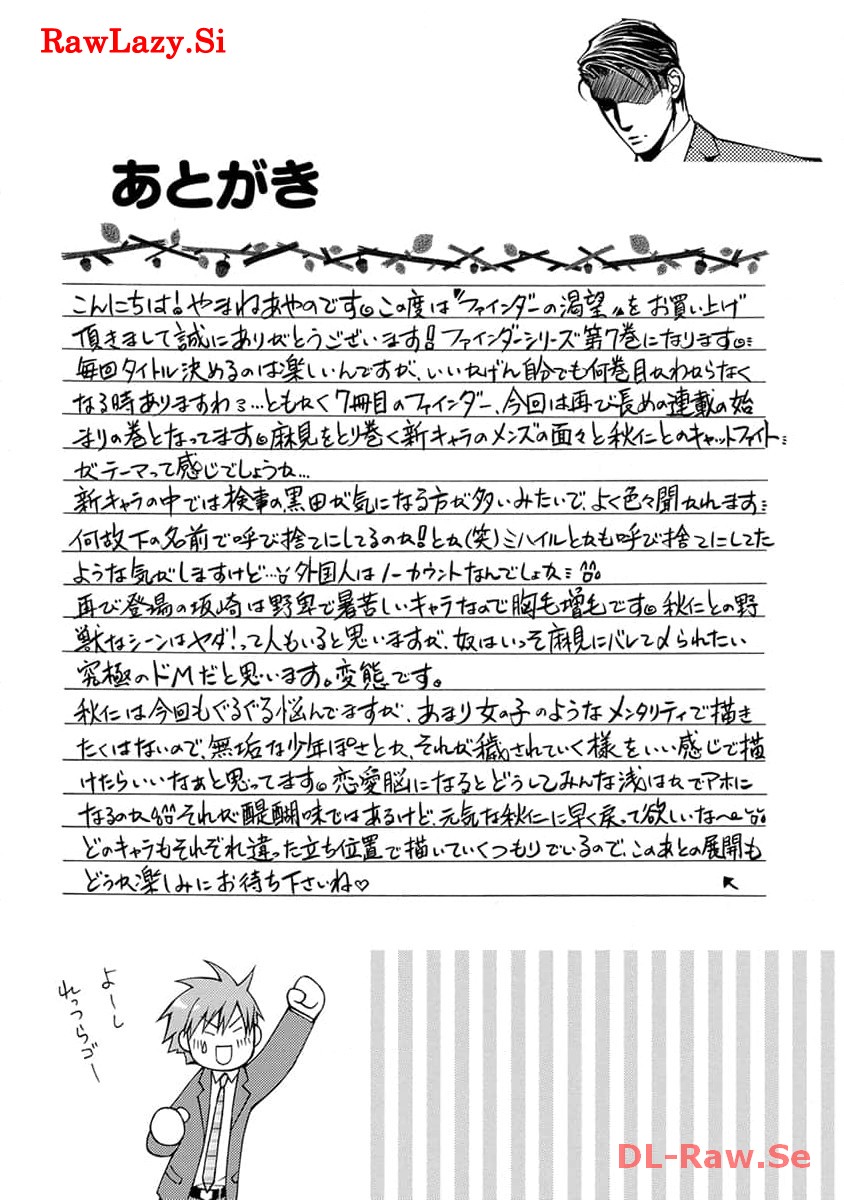 RawLazy.Si
あとがき
こんにちは!やまねあやのです。この度は〝ファインダーの渇望〟をお買い上げ
頂きまして誠にありがとうございます!ファインダーシリーズ第7巻になります。
毎回タイトル決めるのは楽しいんですが、いいかげん自分でも何巻目かわからなく
なる時ありますわ…ともかく7冊目のファインダー、今回は再び長めの連載の始
まりの巻となってます。麻見をとり巻く新キャラのメンズの面々と秋仁とのキャットファイト
がテーマって感じでしょうか…
新キャラの中では検事の黒田が気になる方が多いみたいで、よく色々聞かれます
何故下の名前で呼び捨てにしてるのか!とか(笑)ミハイルとかも呼び捨てにしてた
ような気がしますけど…外国人はノーカウントなんでしょか
再び登場の坂崎は野卑で暑苦しいキャラなので胸毛増毛です。秋仁との野
獣なシーンはヤダ!って人もいると思いますが、奴はいっそ麻見にバレて〆られたい
究極のドMだと思います。変態です。
秋仁は今回もぐるぐる悩んでますが、あまり女の子のようなメンタリティで描き
たくはないので、無垢な少年ぽさとか、それが穢されていく様をいい感じで描
けたらいいなぁと思ってます。恋愛脳になるとどうしてみんな浅はかでアホに
なるのかそれが醍醐味ではあるけど、元気な秋仁に早く戻って欲しいな〜
どのキャラもそれぞれ違った立ち位置で描いていくつもりでいるので、このあとの展開も
どうか楽しみにお待ち下さいね♡ ↖
よーし
れっつらゴー
DL-Raw.Se